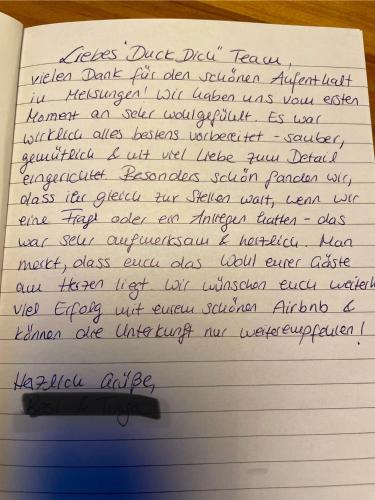 Liebes "Duck Dich" Team,
vielen Dank für den schönen Aufenthalt
in Melsungen! Wir haben uns vom ersten
Moment an sehr wohlgefühlt. Es war
wirklich alles bestens vorbereitet - sauber,
gemütlich & mit viel Liebe zum Detail
eingerichtet. Besonders schön fanden wir,
dass ihr gleich zur Stellen wart, wenn wir
eine Frage oder ein Anliegen hatten - das
war sehr aufmerksam & herzlich. Man
merkt, dass euch das Wohl eurer Gäste
am Herzen liegt. Wir wünschen euch weiterhi
viel Erfolg mit eurem schönen Airbnb &
können die Unterkunft nur weiterempfehlen!
Herzlich Grüße,